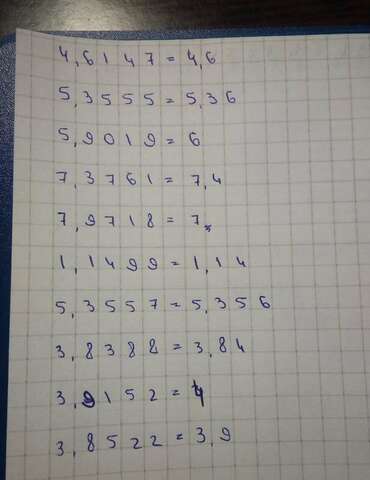 4,6147=4,6
5,3555=5,36
5,9019=6
7,3761=7,4
7,9718=7,
1,1499=1,14
5,3557=5,356
3,8388=3,84
3,9152=4
3,8522=3,9